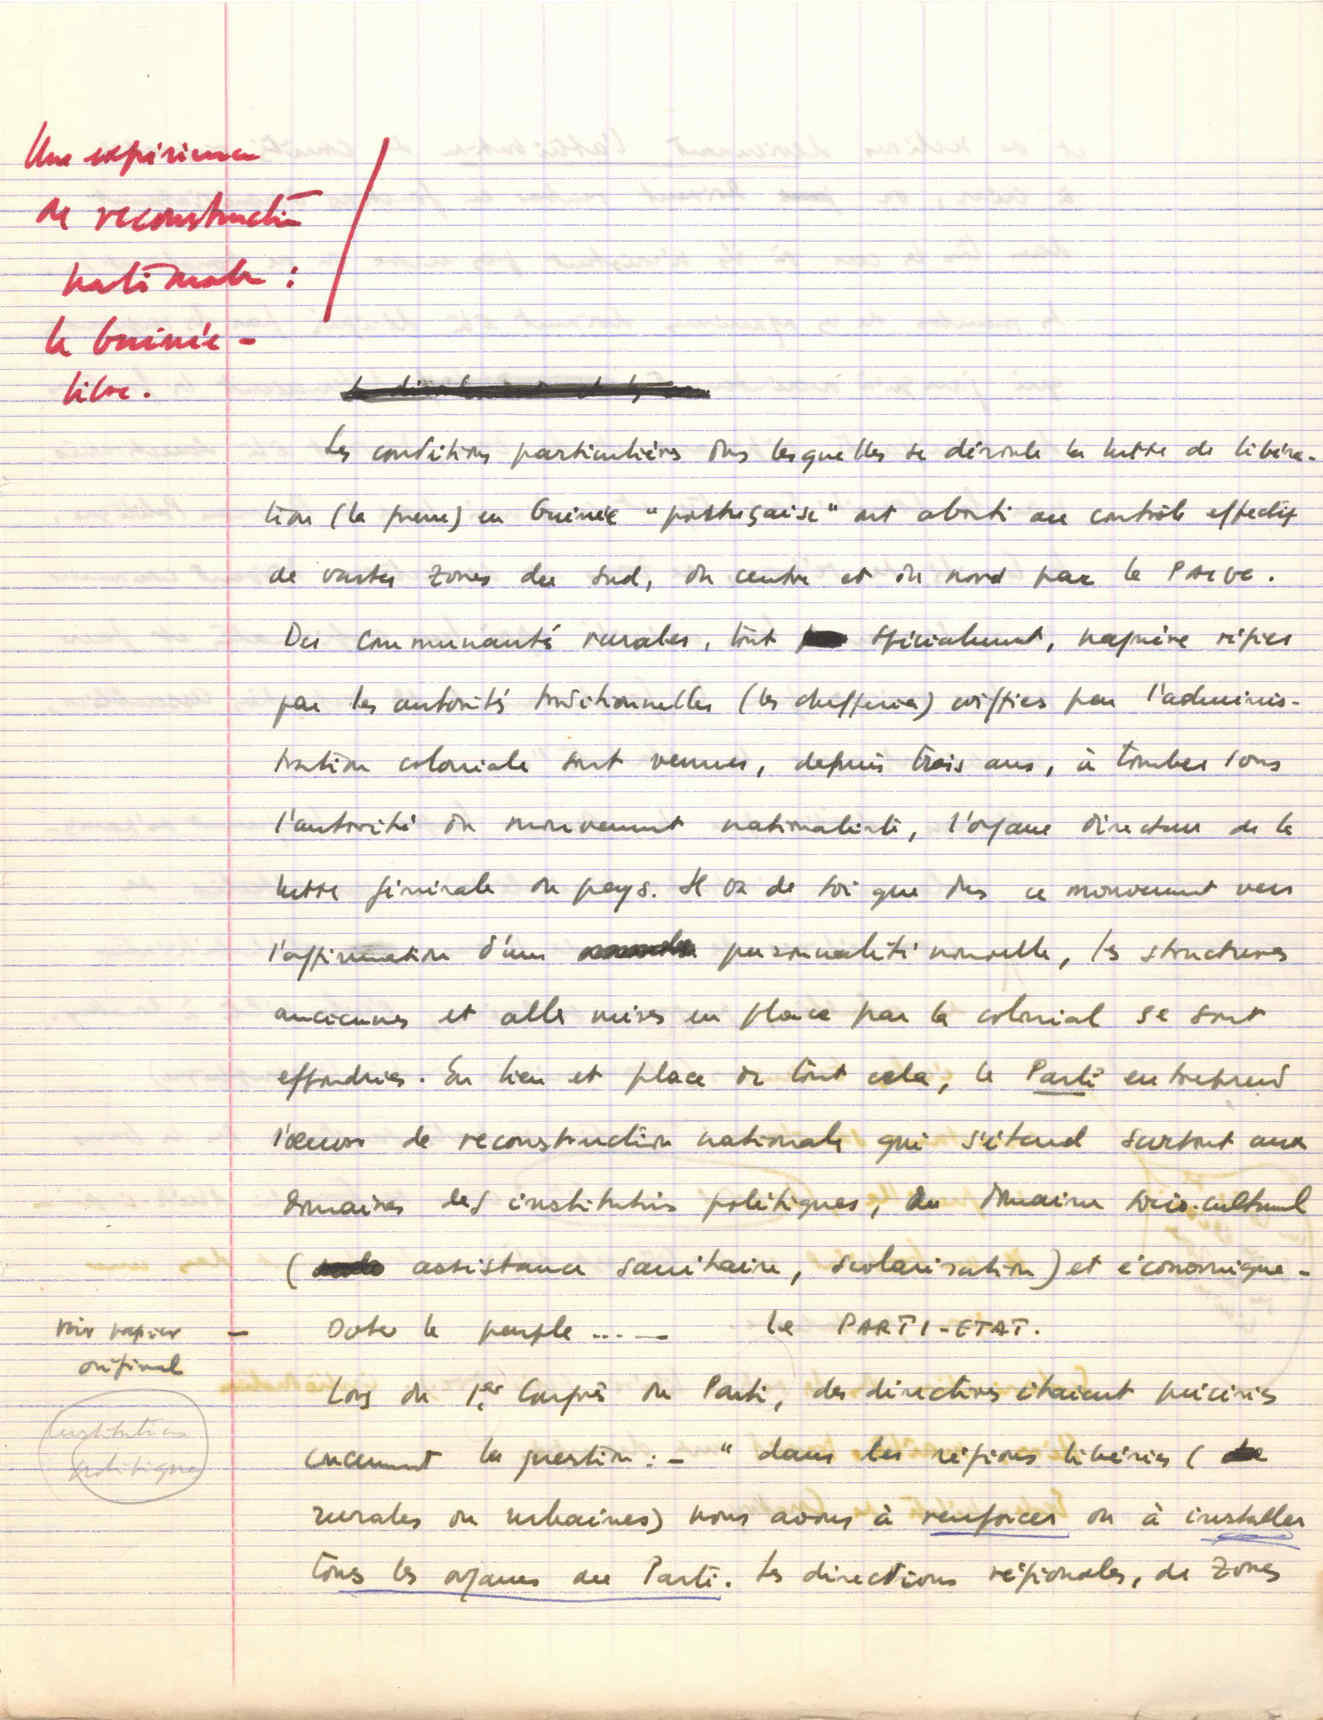 Une expérience
de reconstruction
nationale :
la Guinée -
libre.
Les conditions particulières dans lesquelles se déroule la lutte de libéra-
tion (la guerre) en Guinée "portugaise" ont abouti au contrôle effectif
de vastes zones du sud, du centre et du nord par le PAIGC.
Des communautés rurales, tout spécialement, naguère régies
par les autorités traditionnelles (les chefferies) coiffées par l'adminis-
tration coloniale sont venues, depuis trois ans, à tomber sous
l'autorité du mouvement nationaliste, l'organe directeur de la
lutte générale du pays. Il va de soi que dans ce mouvement vers
l'affirmation d'une personnalité nouvelle, les structures
anciennes et celles mises en place par le colonial se sont
effondrées. En lieu et place de tout cela, le Parti entreprend
l'œuvre de reconstruction nationale qui s'étend surtout aux
domaines des institutions politiques, du domaine socio-culturel
( assistance sanitaire, scolarisation) et économique -
voir papier
original
— Doter le peuple ..... — le PARTI-ETAT.
Institutions
politiques
Lors du 1er Congrès du Parti, des directives étaient précisées
concernant la question : - " dans les régions libérées (
rurales ou urbaines) nous avons à renforcer ou à installer
tous les organes du Parti. Les directions régionales, de zones